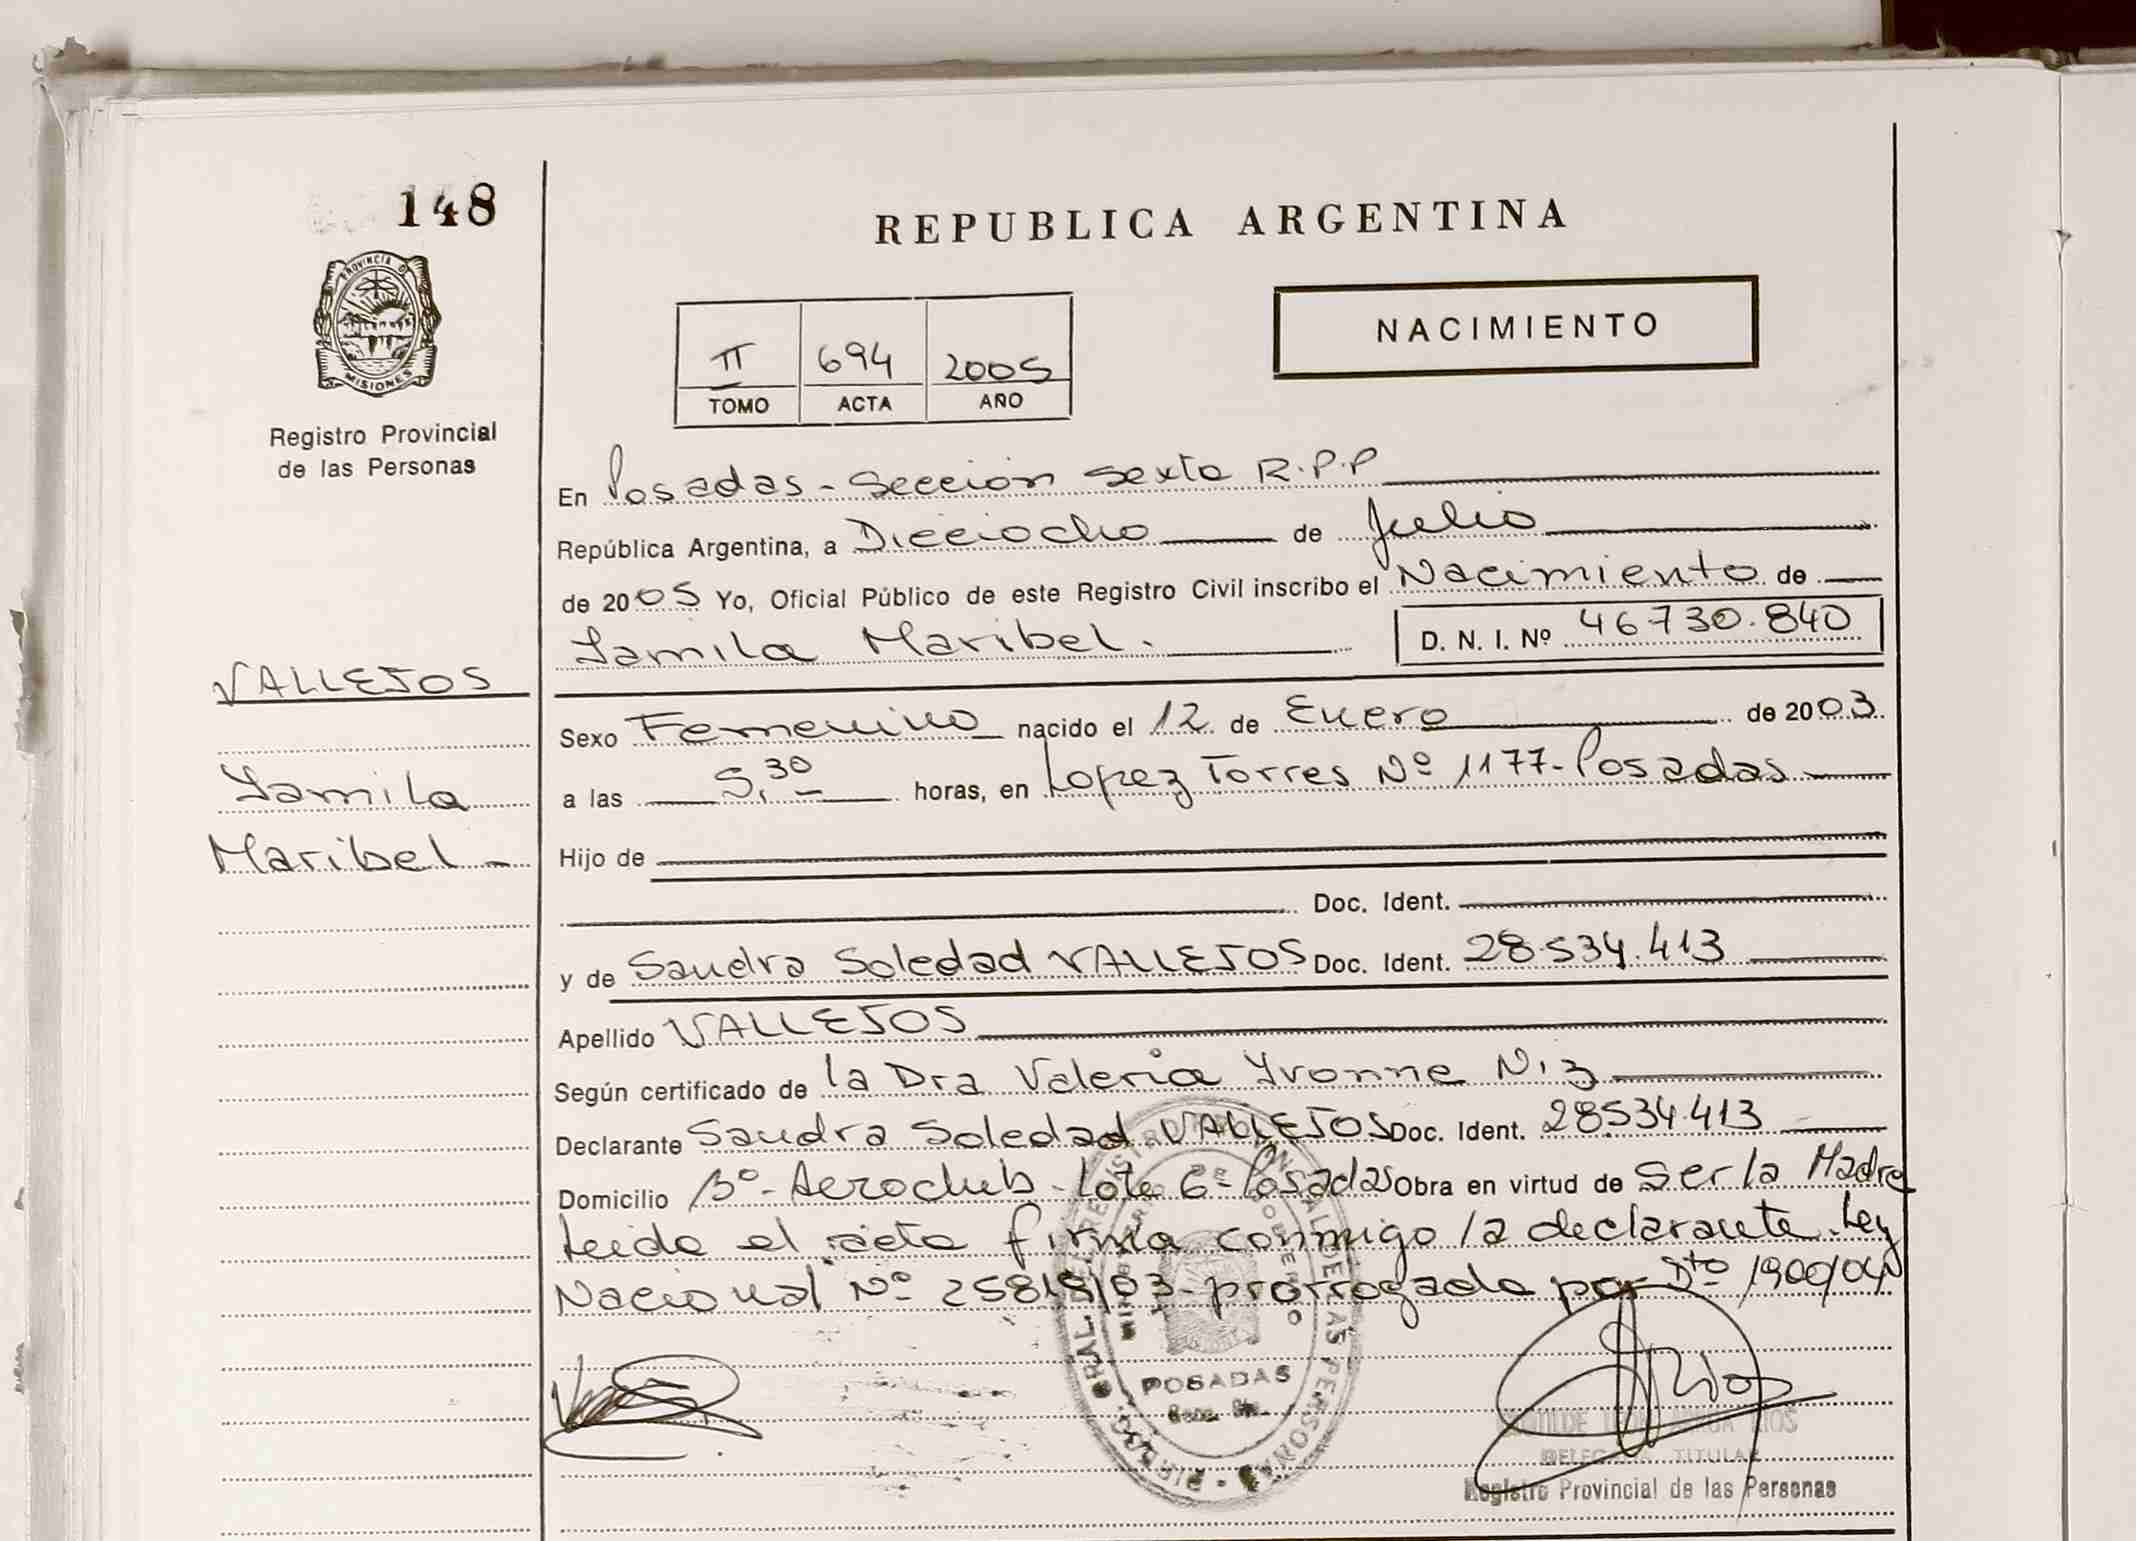 148
REPUBLICA ARGENTINA
PROVINCIA DE
MISIONES
Registro Provincial
de las Personas
II 694 2005
TOMO ACTA AÑO
NACIMIENTO
En Posadas - Sección Sexta R.P.P
República Argentina, a Dieciocho de Julio
de 2005 Yo, Oficial Público de este Registro Civil inscribo el Nacimiento de
Yamila Maribel.
D. N. I. Nº 46730.840
VALLEJOS
Yamila
Maribel
Sexo Femenino nacido el 12 de Enero de 2003
a las 5,30 horas, en Lopez Torres Nº 1177 - Posadas
Hijo de
Doc. Ident.
y de Sandra Soledad VALLEJOS Doc. Ident. 28.534.413
Apellido VALLEJOS
Según certificado de la Dra Valeria Yvonne Niz
Declarante Sandra Soledad VALLEJOS Doc. Ident. 28534.413
Domicilio Bº - Aeroclub - Lote 6 - Posadas Obra en virtud de ser la Madre
Leida el acta firma conmigo la declarante. Ley
Nacional Nº 25819/03 - prorrogada por Dto 1900/04
POSADAS
TITULAR
Registro Provincial de las Personas